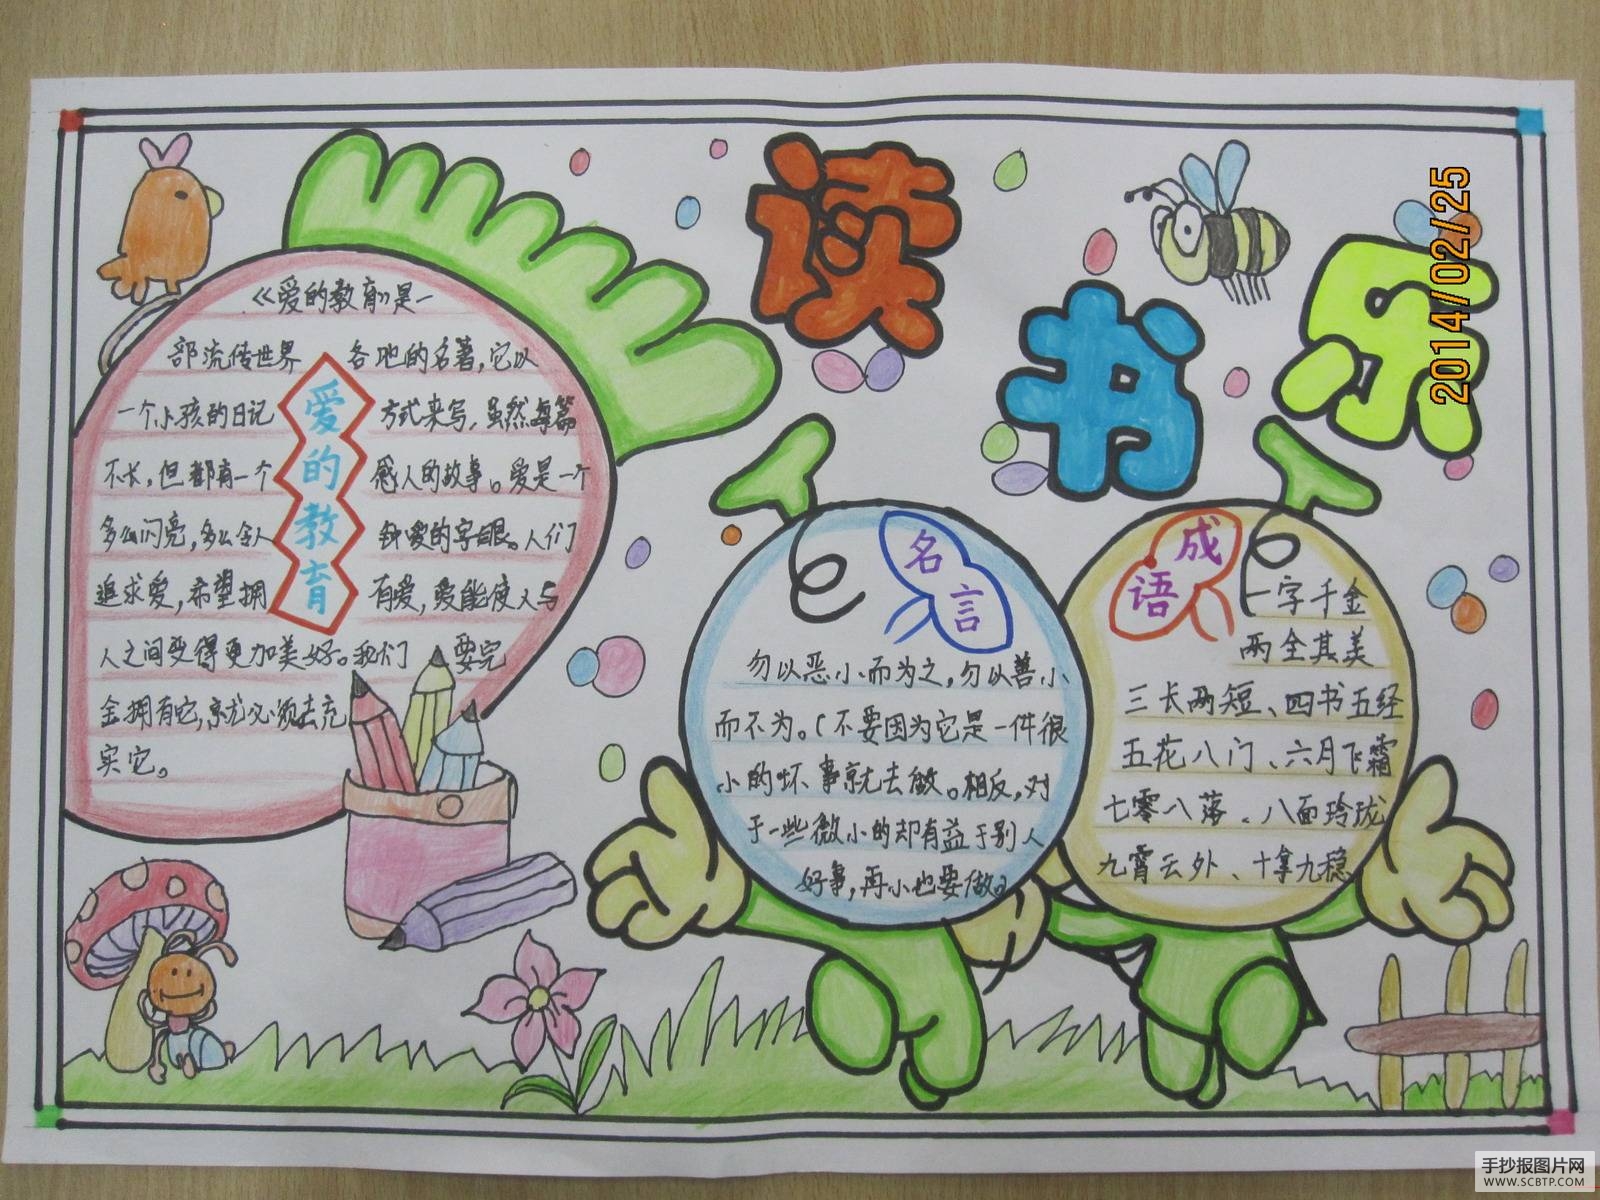 读书乐
2014/02/25
《爱的教育》是一
部流传世界各地的名著,它以
一个小孩的日记方式来写,虽然每篇
不长,但都有一个感人的故事。爱是一个
多么闪亮,多么令人钟爱的字眼。人们
追求爱,希望拥有爱,爱能使人与
人之间变得更加美好。我们要完
全拥有它,就必须去充
实它。
爱的教育
名言
勿以恶小而为之,勿以善小
而不为。(不要因为它是一件很
小的坏事就去做。相反,对
于一些微小的却有益于别人
好事,再小也要做。)
成语
一字千金
两全其美
三长两短、四书五经
五花八门、六月飞霜
七零八落、八面玲珑
九霄云外、十拿九稳
手抄报图片网
WWW.SCBTP.COM